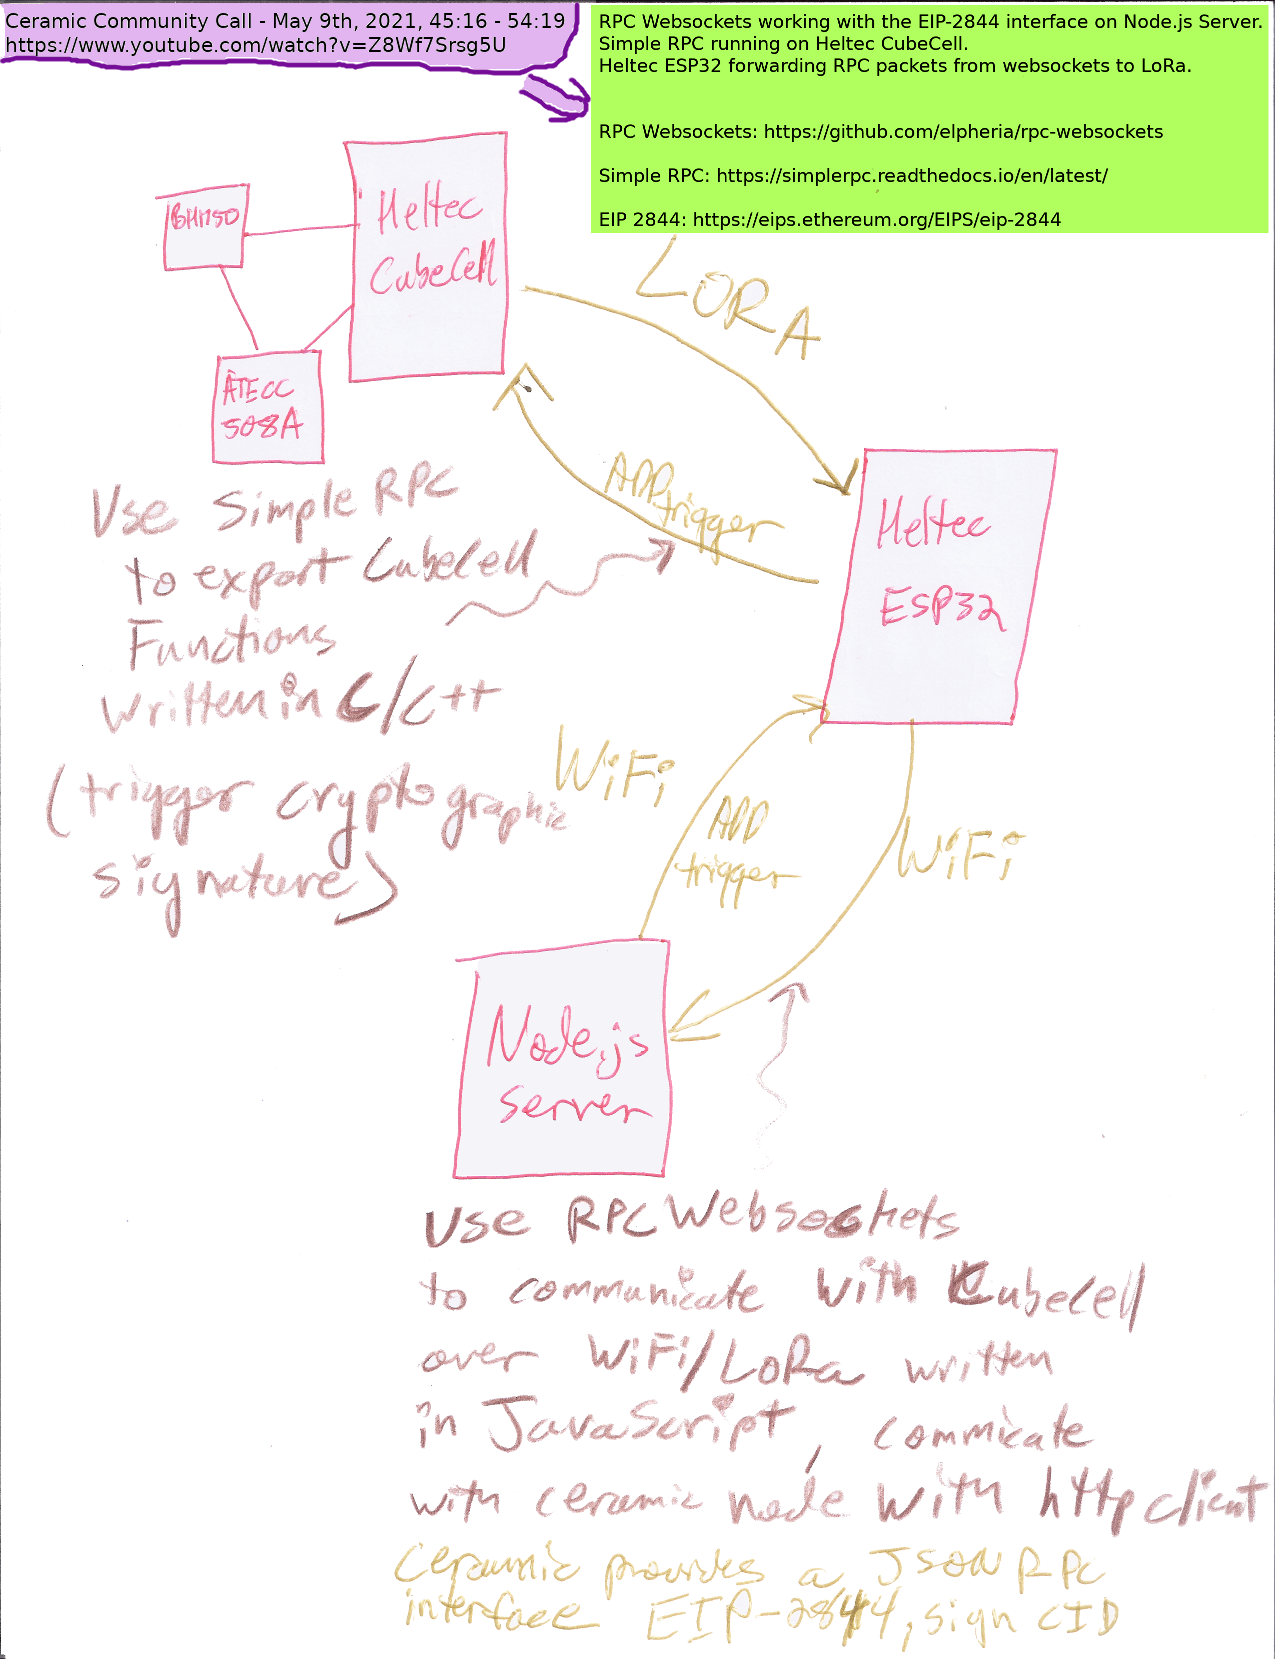 Ceramic Community Call - May 9th, 2021, 45:16 - 54:19
https://www.youtube.com/watch?v=Z8Wf7Srsg5U
RPC Websockets working with the EIP-2844 interface on Node.js Server.
Simple RPC running on Heltec CubeCell.
Heltec ESP32 forwarding RPC packets from websockets to LoRa.
RPC Websockets: https://github.com/elpheria/rpc-websockets
Simple RPC: https://simplerpc.readthedocs.io/en/latest/
EIP 2844: https://eips.ethereum.org/EIPS/eip-2844
BH1750
Heltec
CubeCell
ATECC
508A
LORA
ADD
trigger
Heltec
ESP32
Use Simple RPC
to export Cubecell
Functions
written in C/C++
(trigger cryptographic
signature)
WiFi
ADD
trigger
WiFi
Node.js
server
Use RPC Websockets
to communicate with Cubecell
over WiFi/LoRa written
in JavaScript, commicate
with ceramic node with http client
Ceramic provides a JSON RPC
interface EIP-2844, sign CID